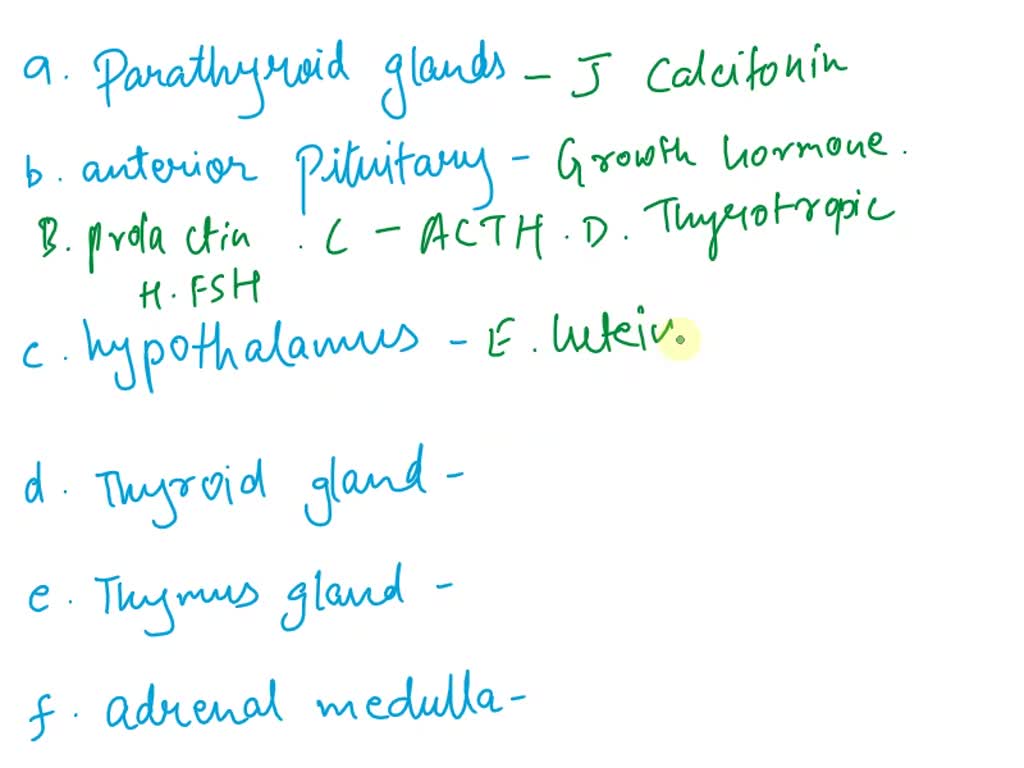 a. Parathyroid glands - J Calcitonin
b. anterior Pituitary - Growth hormone.
B. prolactin . C - ACTH. D. Thyrotropic
H. FSH
c. hypothalamus - E. lutein
d. Thyroid gland -
e. Thymus gland -
f. adrenal medulla -